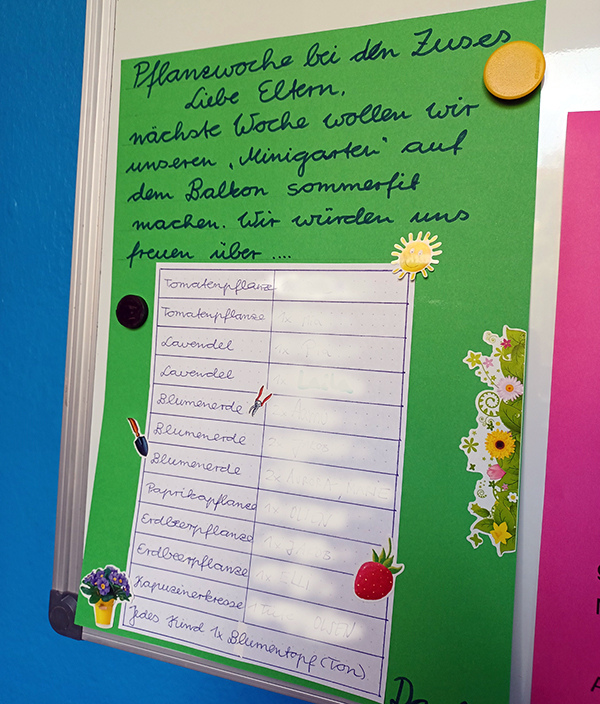 Pflanzwoche bei den Zuses
Liebe Eltern,
nächste Woche wollen wir
unseren „Minigarten" auf
dem Balkon sommerfit
machen. Wir würden uns
freuen über ....
Tomatenpflanze
Tomatenpflanze
Lavendel
Lavendel
Blumenerde
Blumenerde
Blumenerde
Paprikapflanze
Erdbeerpflanze
Erdbeerpflanze
Kapuzinerkresse
Jedes Kind 1x Blumentopf (Ton)